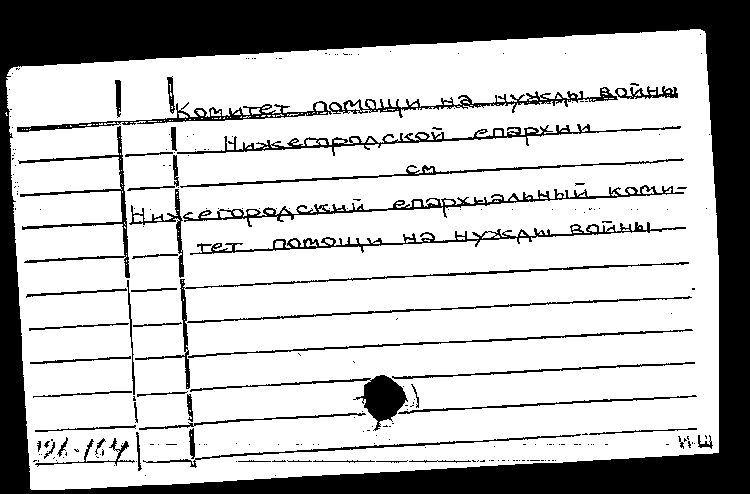 Комитет помощи на нужды войны
Нижегородской епархии
см
Нижегородский епархиальный коми=
тет помощи на нужды войны
126-164
И-Ш